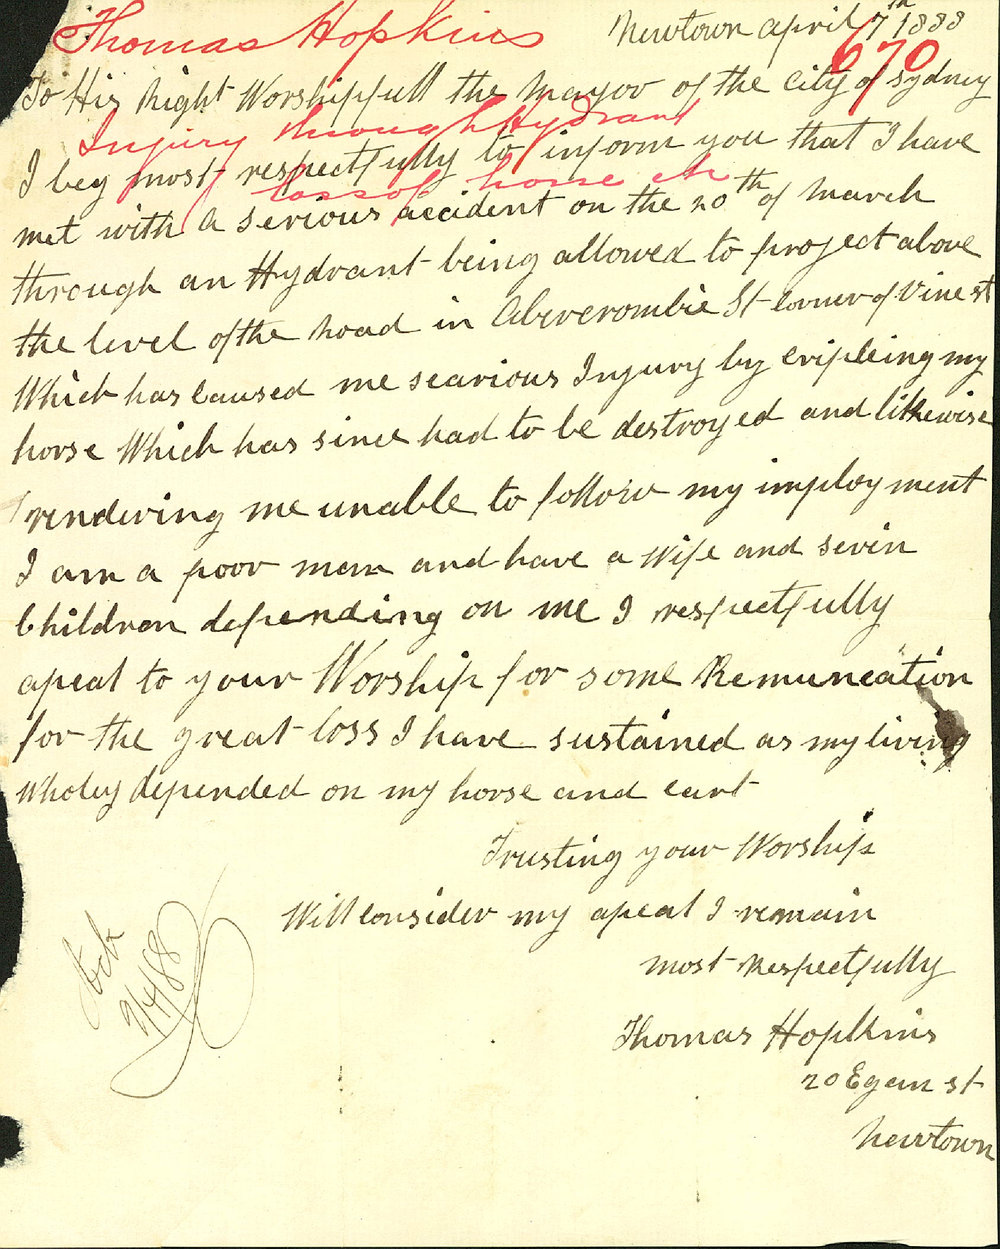 Thomas Hopkins
Newtown april 7th 1888
670
To His Right Worshipfull the Mayor of the City of Sydney
Injury through Hydrant
I beg most respectfully to inform you that I have
loss of horse etc
met with a serious accident on the 20th of March
through an Hydrant being allowed to project above
the level of the Road in Abercrombie St corner of Vine st
Which has caused me searious Injury by cripleing my
horse Which has since had to be destroyed and likewise
rendering me unable to follow my imployment
I am a poor man and have a Wife and sevin
Children depending on me I respectfully
apeal to your Worship for some Remuneation
for the great loss I have sustained as my living
Wholey depended on my horse and cart
Trusting your Worship
Will consider my apeal I remain
most Respectfully
Ack
9/4/88
Thomas Hopkins
20 Egan st
Newtown